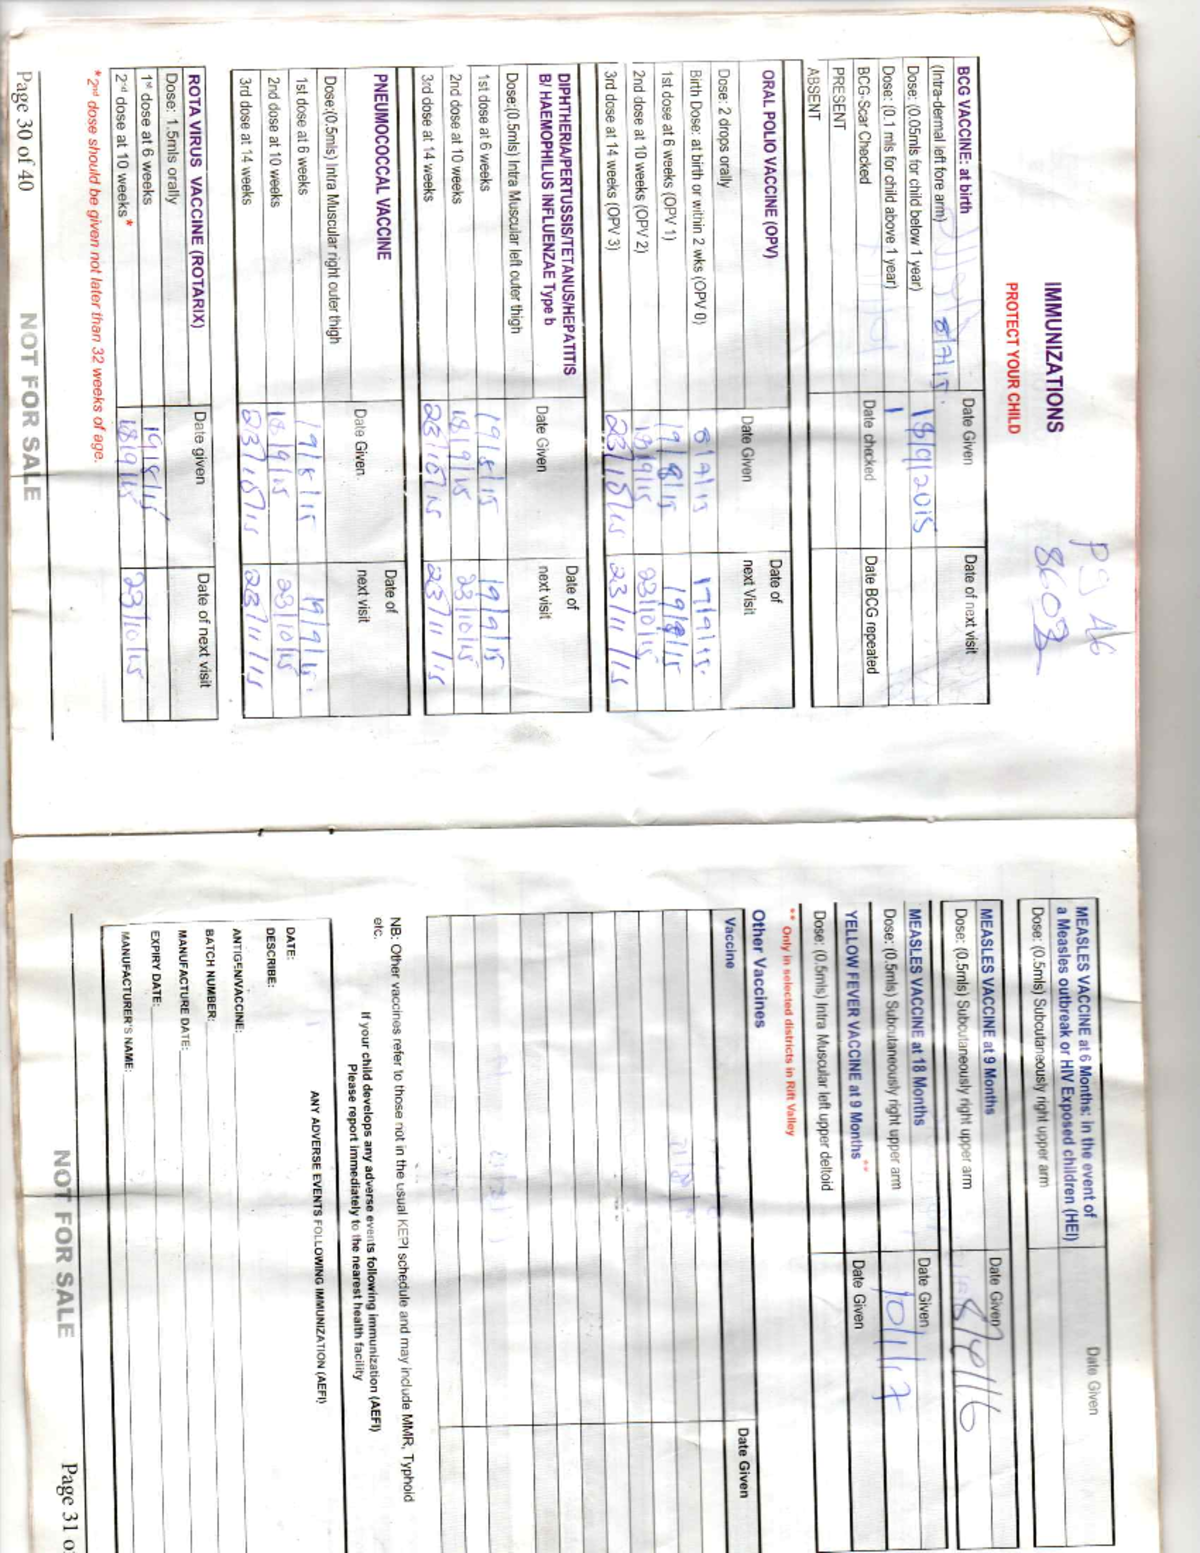 IMMUNIZATIONS
PROTECT YOUR CHILD
Pg 46
BCG VACCINE: at birth Date Given Date of next visit
(Intra-dermal left fore arm) 8/7/15
Dose: (0.05mls for child below 1 year) 18/9/2015
Dose: (0.1 mls for child above 1 year)
BCG-Scar Checked Date checked Date BCG repeated
PRESENT
ABSENT
ORAL POLIO VACCINE (OPV) Date Given Date of next Visit
Dose: 2 drops orally
Birth Dose: at birth or within 2 wks (OPV 0)
1st dose at 6 weeks (OPV 1) 19/8/15 19/8/15
2nd dose at 10 weeks (OPV 2) 18/9/15 23/10/15
3rd dose at 14 weeks (OPV 3) 23/10/15 23/11/15
DIPHTHERIA/PERTUSSIS/TETANUS/HEPATITIS Date Given Date of
B/ HAEMOPHILUS INFLUENZAE Type b next visit
Dose:(0.5mls) Intra Muscular left outer thigh
1st dose at 6 weeks 19/8/15 19/9/15
2nd dose at 10 weeks 18/9/15 23/10/15
3rd dose at 14 weeks 23/10/15 23/11/15
PNEUMOCOCCAL VACCINE Date Given Date of
next visit
Dose:(0.5mls) Intra Muscular right outer thigh
1st dose at 6 weeks 19/8/15 19/9/15
2nd dose at 10 weeks 18/9/15 23/10/15
3rd dose at 14 weeks 23/10/15 23/11/15
ROTA VIRUS VACCINE (ROTARIX) Date given Date of next visit
Dose: 1.5mls orally
1st dose at 6 weeks 19/8/15
2nd dose at 10 weeks* 18/9/15 23/10/15
*2nd dose should be given not later than 32 weeks of age.
Page 30 of 40 NOT FOR SALE
MEASLES VACCINE at 6 Months: in the event of Date Given
a Measles outbreak or HIV Exposed children (HEI)
Dose: (0.5mls) Subcutaneously right upper arm
MEASLES VACCINE at 9 Months Date Given
Dose: (0.5mls) Subcutaneously right upper arm 8/4/16
MEASLES VACCINE at 18 Months Date Given
Dose: (0.5mls) Subcutaneously right upper arm 10/1/17
YELLOW FEVER VACCINE at 9 Months ** Date Given
Dose: (0.5mls) Intra Muscular left upper deltoid
** Only in selected districts in Rift Valley
Other Vaccines
Vaccine Date Given
NB: Other vaccines refer to those not in the usual KEPI schedule and may include MMR, Typhoid
etc.
If your child develops any adverse events following immunization (AEFI)
Please report immediately to the nearest health facility
ANY ADVERSE EVENTS FOLLOWING IMMUNIZATION (AEFI)
DATE:
DESCRIBE:
ANTIGEN/VACCINE:
BATCH NUMBER:
MANUFACTURE DATE:
EXPIRY DATE:
MANUFACTURER'S NAME:
NOT FOR SALE Page 31 o